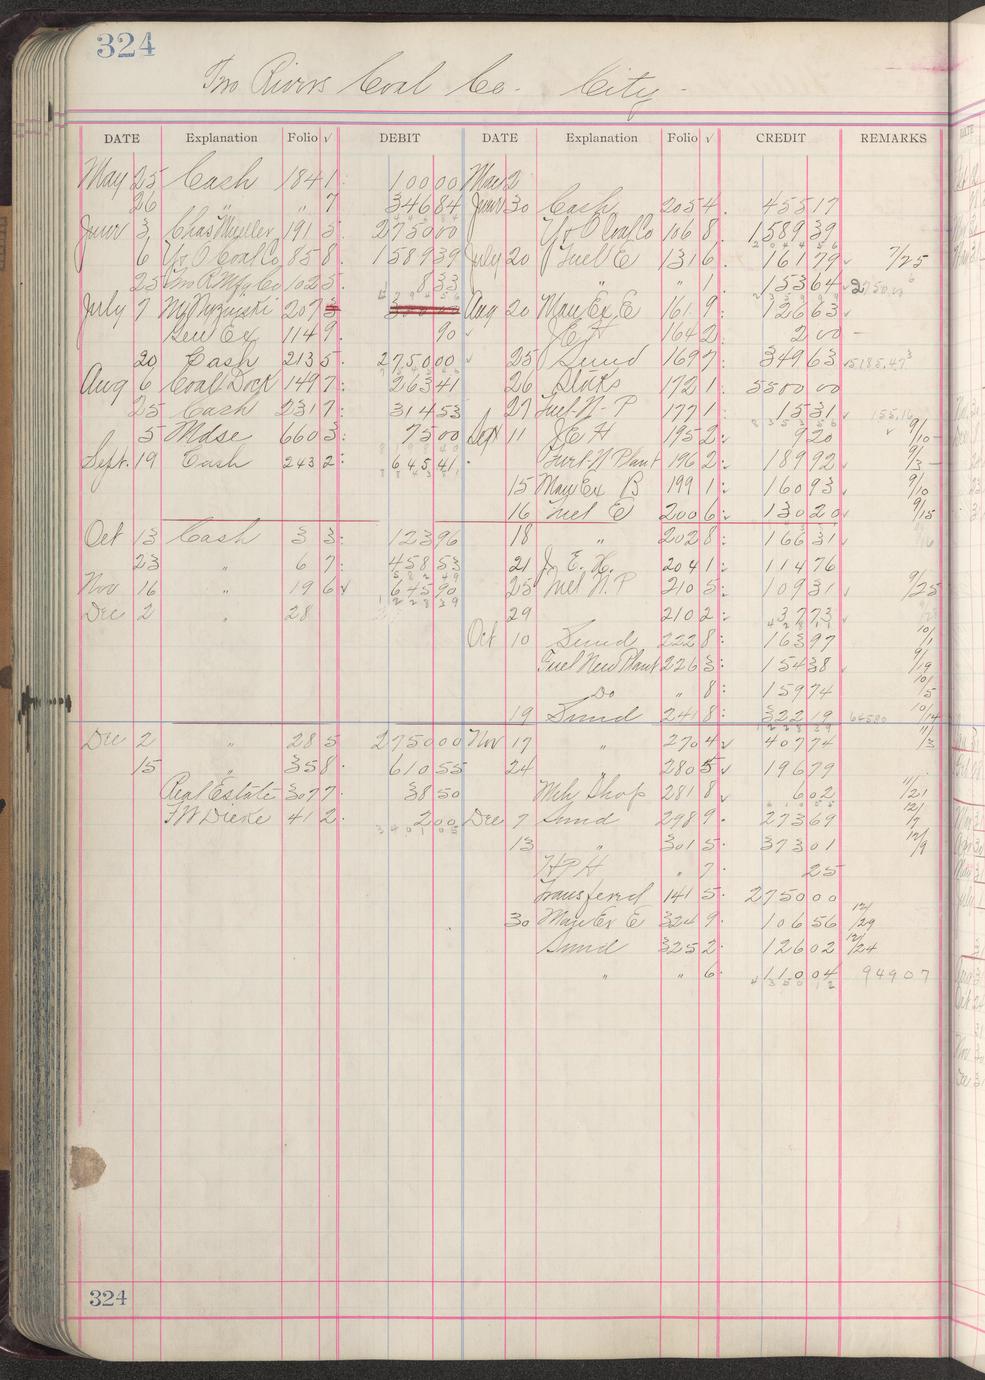 324
Two Rivers Coal Co. City
DATE Explanation Folio √ DEBIT DATE Explanation Folio √ CREDIT REMARKS
May 25 Cash 184 1 100 00 May 2
26 " " 7 346 84 June 30 Cash 205 4 455 17
June 3 Chas Mueller 191 3 2750 00 Y & O Coal Co 106 8 1589 39
6 Y & O Coal Co 85 8 1589 39 July 20 Fuel E 131 6 161 79 7/25
25 Two R Mfg Co 102 5 8 33 " " 1 153 64 2750.00
July 7 207 3 Aug 20 Man Ex E 161 9 126 63
Gen Ex 114 9 90 J E H 164 2 2 00
20 Cash 213 5 2750 00 25 Sund 169 7 349 63 5185.47
Aug 6 Coal Dock 149 7 263 41 26 Stoks 172 1 5500 00
25 Cash 231 7 314 53 27 Fuel N-P 177 1 15 31 155.16
5 Mdse 660 3 75 00 Sept 11 J E H 195 2 9 20 9/10
Sept. 19 Cash 243 2 645 41 Furt. N Plant 196 2 189 92 9/3
15 Man Ex B 199 1 160 93 9/10
16 Fuel E 200 6 130 20 9/15
Oct 13 Cash 3 3 123 96 18 " 202 8 166 31 9/16
23 " 6 7 458 53 21 J. E. H. 204 1 114 76
Nov 16 " 19 6 √ 645 90 25 Fuel N.P 210 5 109 31 9/25
Dec 2 " 28 29 210 2 37 73
Oct 10 Sund 222 8 163 97 10/1
Fuel New Plant 226 3 154 38 9/19
Do " 8 159 74 10/5
19 Sund 241 8 322 19 64590 10/14
Dec 2 " 28 5 2750 00 Nov 17 " 270 4 407 74 11/3
15 " 35 8 610 55 24 280 5 196 79
Real Estate 307 7 38 50 Mch Shop 281 8 6 02 11/21
F W Dicke 41 2 2 00 Dec 7 Sund 298 9 273 69 12/7
13 " 301 5 373 01 12/9
H P H " 7 25
Transferred 141 5 2750 00
30 Man Ex E 324 9 106 56 12/29
Sund 325 2 126 02 12/24
" " 6 110 04 949 07
324